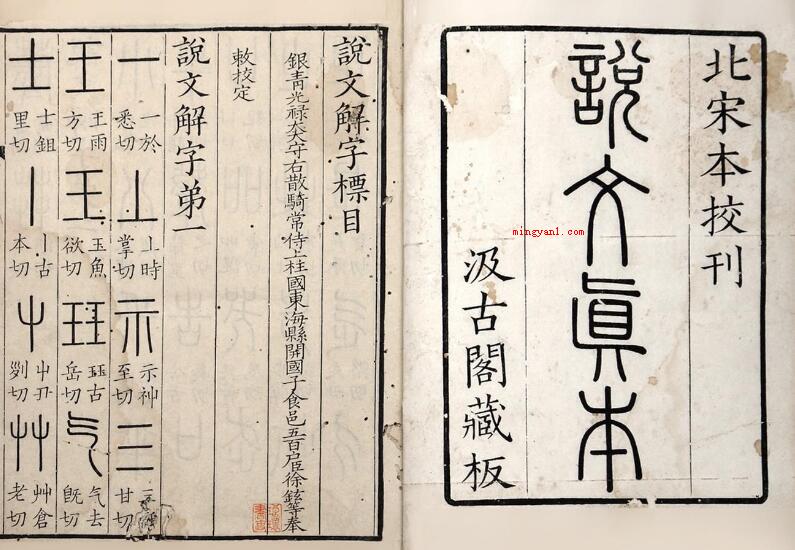 北宋本挍刊
說文眞本
汲古閣藏板
mingyan1.com
說文解字標目
銀青光祿大夫守右散騎常侍上柱國東海縣開國子食邑五百戶臣徐鉉等奉
敕挍定
說文解字弟一
一 一於悉切 丄 丄時掌切 示 示神至切 三 三 甘切
王 王雨方切 王 玉魚欲切 玨 玨古岳切 气 气去旣切
士 士鉏里切 丨 丨古本切 屮 屮丑列切 艸 艸倉老切